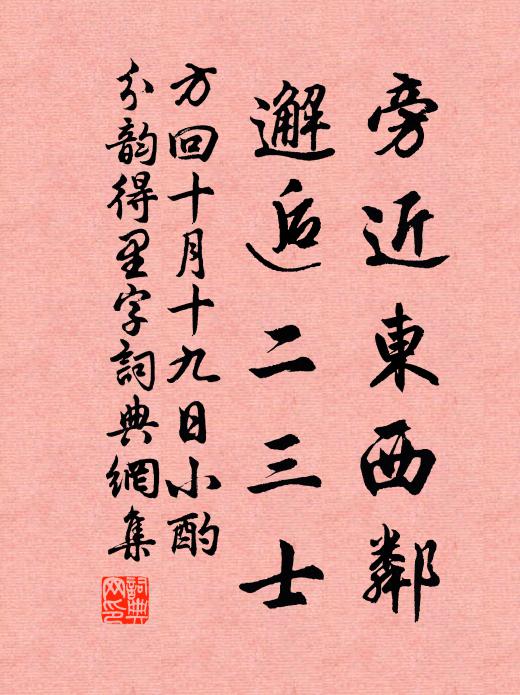 旁近東西鄰
邂逅二三士
方回十月十九日小酌
分韵得里字詞典網集
詞典網印